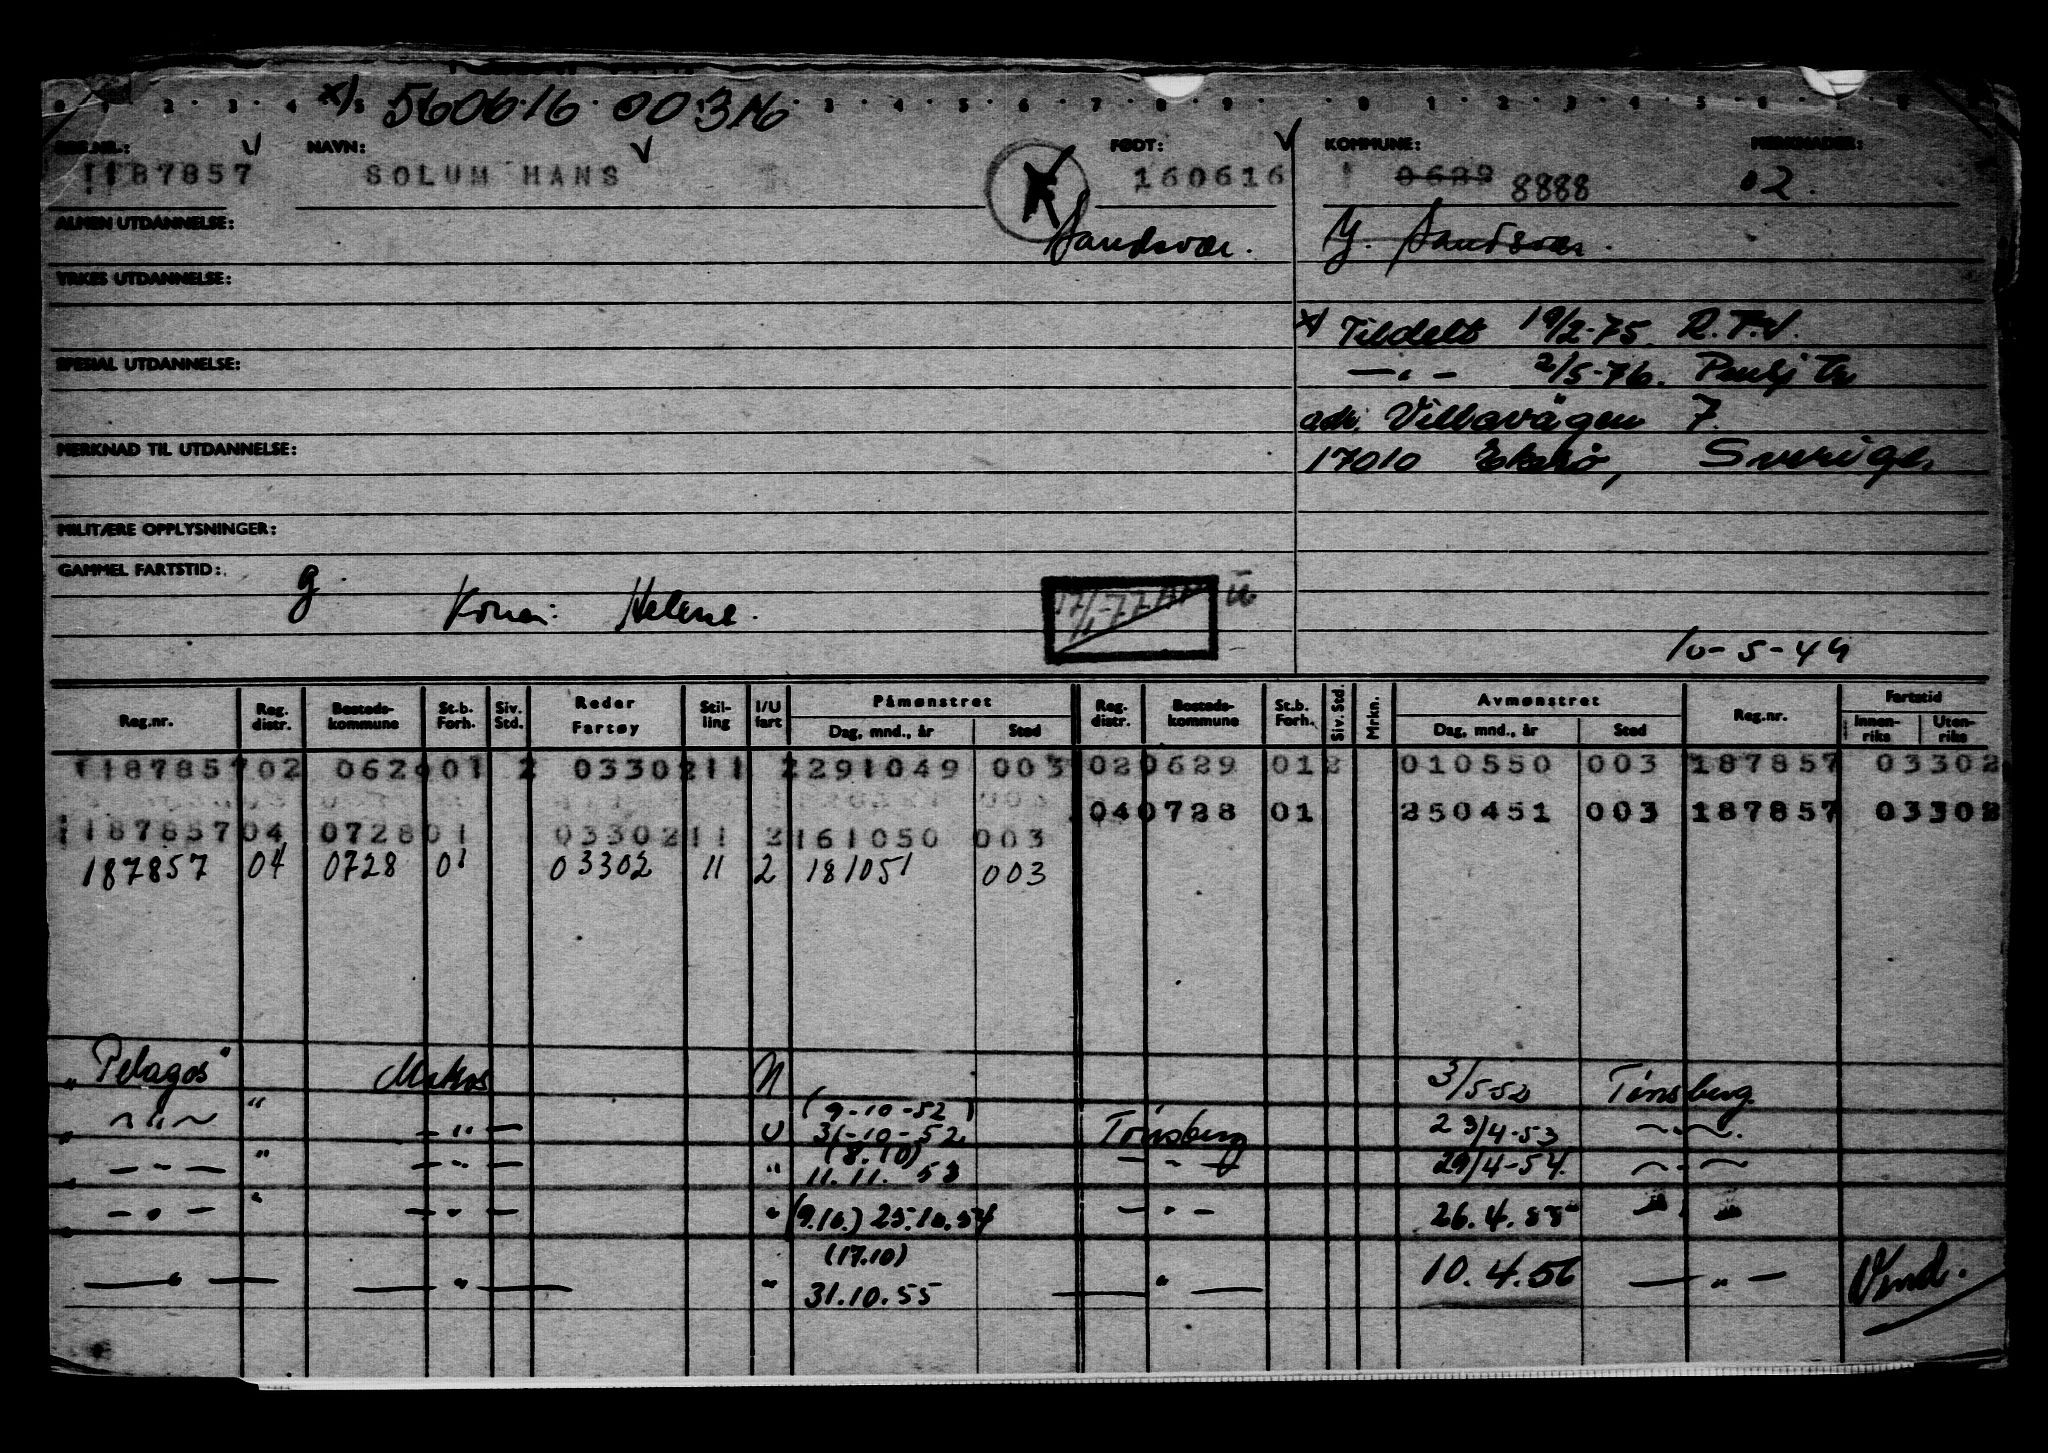 x) 560616 00316
REG.NR.: NAVN: FØDT: KOMMUNE: MERKNADER:
187857 SOLUM HANS 160616 0629 8888 02.
ALMEN UTDANNELSE: Sandsvær. Y. Sandsvær.
YRKES UTDANNELSE:
x) Tildelt 19/2-75. R.T.V.
SPESIAL UTDANNELSE: — " — 2/5-76.
adr. Villavägen 7.
MERKNAD TIL UTDANNELSE: 17010 Ekerö, Sverige
MILITÆRE OPPLYSNINGER:
GAMMEL FARTSTID: g.
Kone: Helene.
10-5-49
Reg.nr. Reg. distr. Bosteds- kommune St.b. Forh. Siv. Std. Reder Fartøy Stil- ling I/U fart Påmønstret Dag, mnd., år Sted Reg. distr. Bosteds- kommune St.b. Forh. Siv. Std. Mrkn. Avmønstret Dag, mnd., år Sted Reg.nr. Fartstid Innen- riks Uten- riks
187857 02 0629 01 2 03302 11 2 291049 003 02 0629 01 2 010550 003 187857 03302
04 0728 01 250451 003 187857 03302
187857 04 0728 01 03302 11 2 161050 003
187857 04 0728 01 03302 11 2 181051 003
"Pelagos" 3/5-52 Tønsberg.
— " — — " — U (9-10-52) 31-10-52 Tønsberg 23/4-53 — " —
— " — — " — " (8.10) 11.11.53 — " — 29/4-54. — " —
— " — — " — " (9.10.) 25.10.54 — " — 26.4. " "
— " — — " — " (17.10) 31.10.55 — " — 10.4.56 — " — Vend.